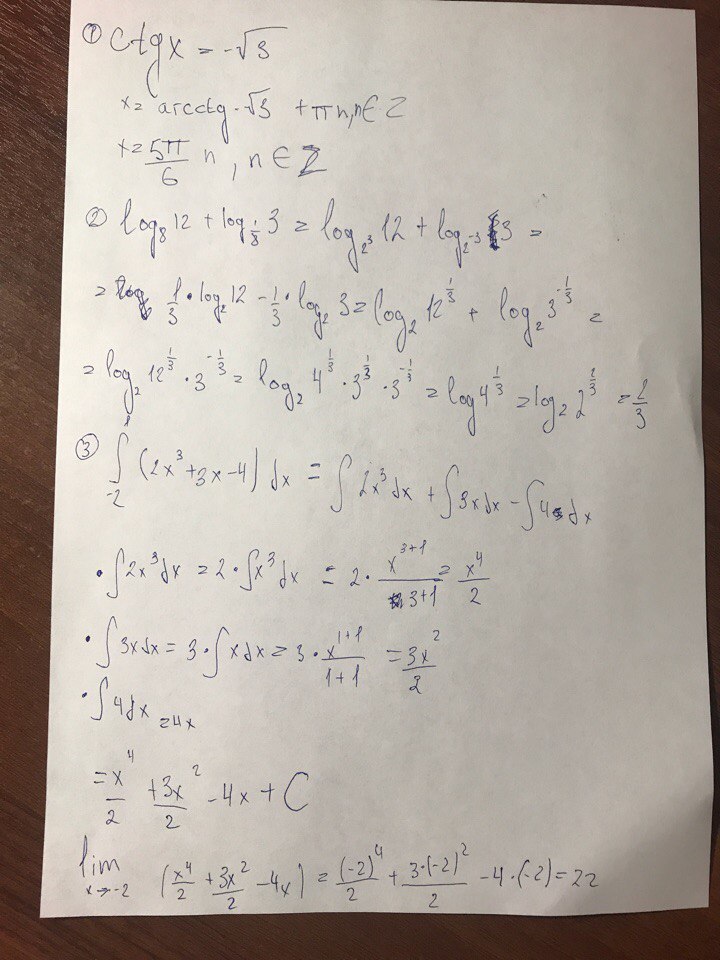 ① ctgx = -√3
x = arcctg -√3 + πn, n ∈ Z
x = 5π/6 n, n ∈ Z
② log₈12 + log_{1/8} 3 = log_{2³} 12 + log_{2⁻³} 3 =
= 1/3 · log₂12 - 1/3 · log₂3 = log₂12^{1/3} + log₂3^{-1/3} =
= log₂12^{1/3} · 3^{-1/3} = log₂4^{1/3} · 3^{1/3} · 3^{-1/3} = log4^{1/3} = log₂2^{2/3} = 2/3
③ ∫_{-2}^{1} (2x³ + 3x - 4) dx = ∫2x³dx + ∫3xdx - ∫4dx
· ∫2x³dx = 2 · ∫x³dx = 2 · x^{3+1}/(3+1) = x⁴/2
· ∫3xdx = 3 · ∫xdx = 3 · x^{1+1}/(1+1) = 3x²/2
· ∫4dx = 4x
= x⁴/2 + 3x²/2 - 4x + C
lim_{x→-2} (x⁴/2 + 3x²/2 - 4x) = (-2)⁴/2 + 3·(-2)²/2 - 4·(-2) = 22